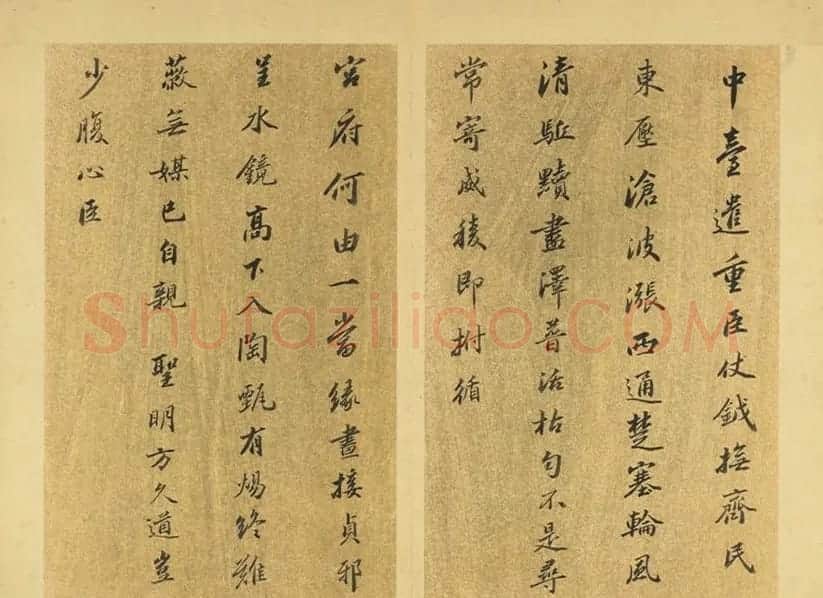 中臺遣重臣仗鉞撫齊民
東壓滄波漲西通楚塞輪風
清駈黷盡澤普活枯勻不是尋
常寄威稜即拊循
宮府何由一當緣晝接貞邪
呈水鏡高下入陶甄有煬終難
蔽無媒已自親 聖明方久道豈
少腹心臣
Shufaziliao.COM